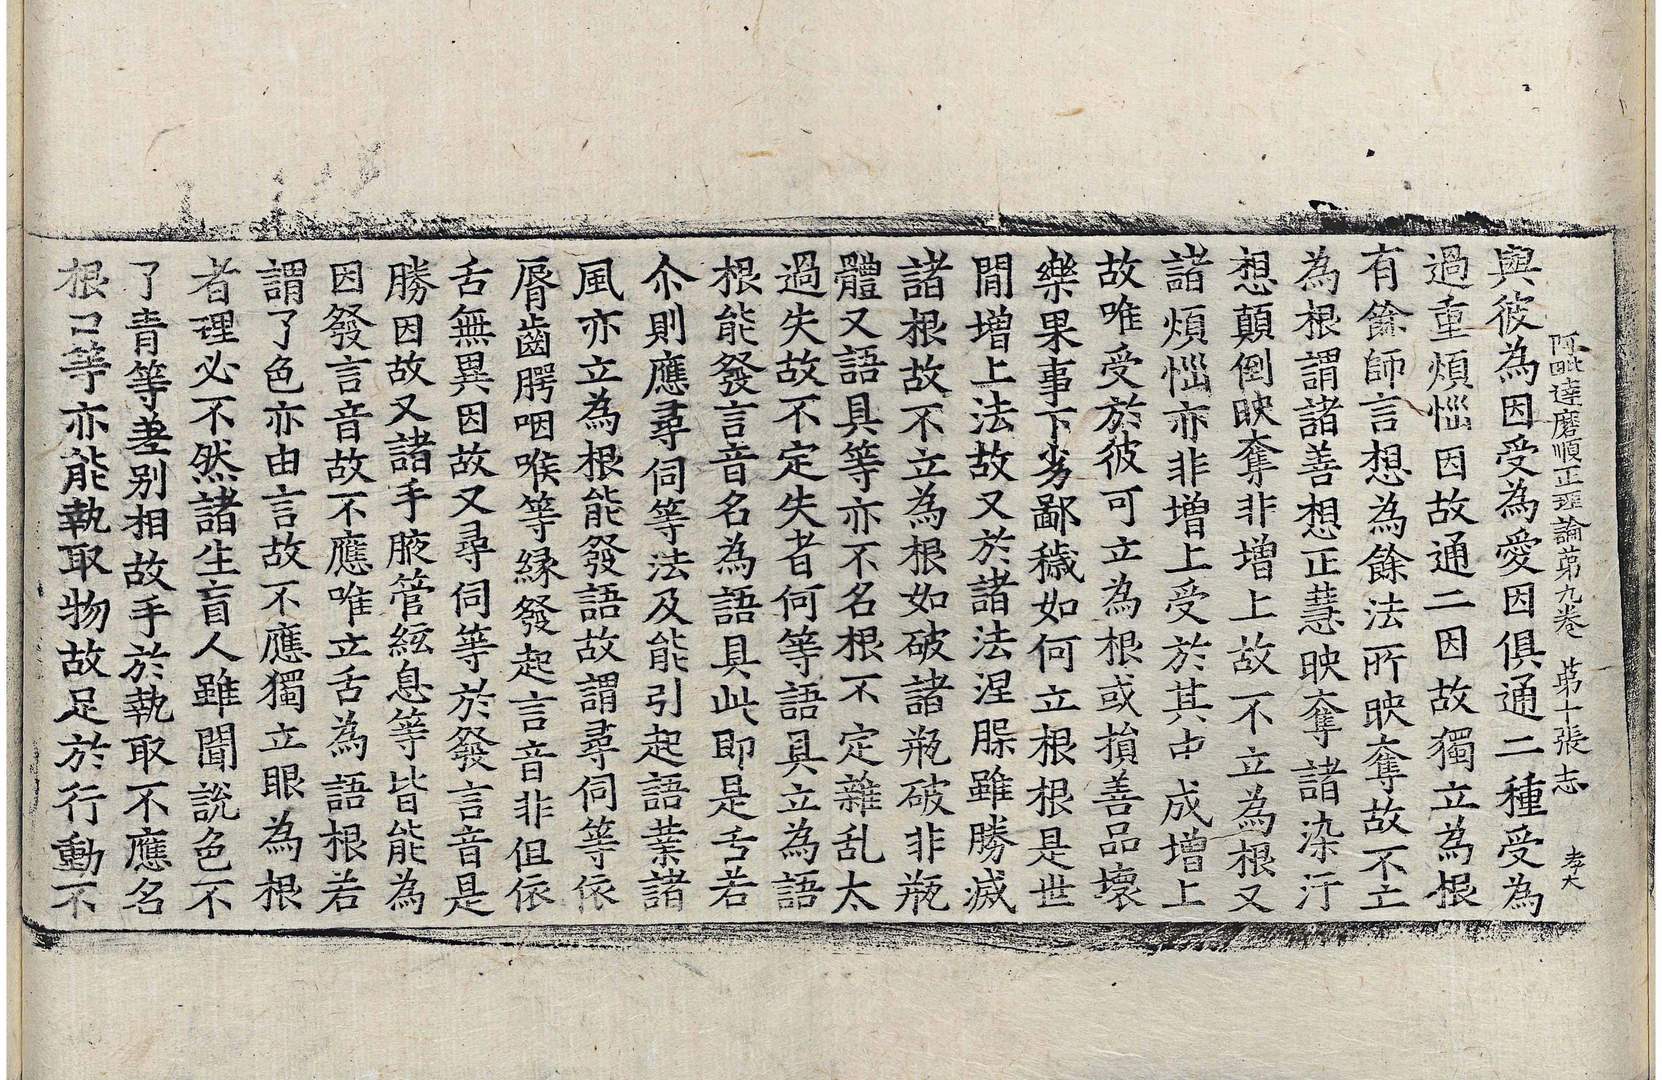 阿毗達磨順正理論第九卷　第十張　志
孝大
與彼為因受為愛因俱通二種受為
過重煩惱因故通二因故獨立為根
有餘師言想為餘法所映奪故不立
為根謂諸善想正慧映奪諸染汙
想顛倒映奪非增上故不立為根又
諸煩惱亦非增上受於其中成增上
故唯受於彼可立為根或損善品壞
樂果事下劣鄙穢如何立根根是世
間增上法故又於諸法涅槃雖勝滅
諸根故不立為根如破諸瓶破非瓶
體又語具等亦不名根不定雜乱太
過失故不定失者何等語具立為語
根能發言音名為語具此即是舌若
尒則應尋伺等法及能引起語業諸
風亦立為根能發語故謂尋伺等依
脣齒腭咽喉等緣發起言音非但依
舌無異因故又尋伺等於發言音是
勝因故又諸手腋管絃息等皆能為
因發言音故不應唯立舌為語根若
謂了色亦由言故不應獨立眼為根
者理必不然諸生盲人雖聞說色不
了青等差別相故手於執取不應名
根口等亦能執取物故足於行動不